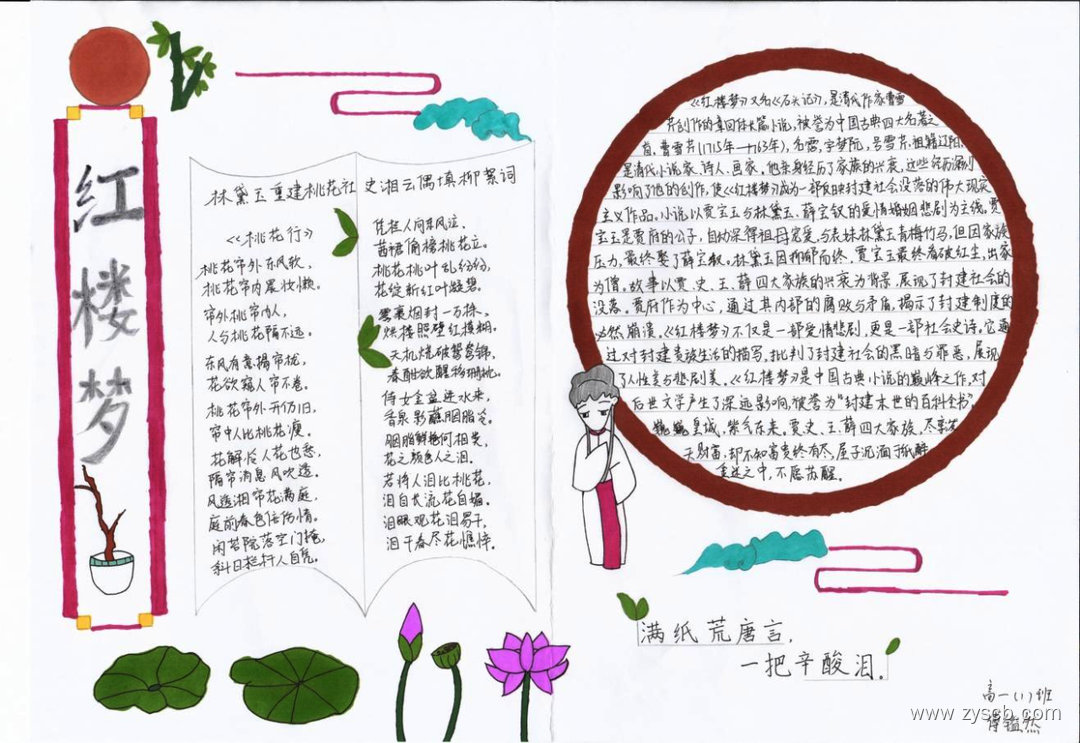 红楼梦
林黛玉重建桃花社 史湘云偶填柳絮词
《桃花行》
桃花帘外东风软，
桃花帘内晨妆懒。
帘外桃花帘内人，
人与桃花隔不远。
东风有意揭帘栊，
花欲窥人帘不卷。
桃花帘外开仍旧，
帘中人比桃花瘦。
花解怜人花也愁，
隔帘消息风吹透。
风透湘帘花满庭，
庭前春色倍伤情。
闲苔院落空门掩，
斜日栏杆人自凭。
凭栏人向东风泣，
茜裙偷傍桃花立。
桃花桃叶乱纷纷，
花绽新红叶凝碧。
雾裹烟封一万株，
烘楼照壁红模糊。
天机烧破鸳鸯锦，
春酣欲醒移珊枕。
侍女金盆进水来，
香泉影蘸胭脂冷。
胭脂鲜艳何相类，
花之颜色人之泪。
若将人泪比桃花，
泪自长流花自媚。
泪眼观花泪易干，
泪干春尽花憔悴。
《红楼梦》又名《石头记》，是清代作家曹雪
芹创作的章回体长篇小说，被誉为中国古典四大名著之
首。曹雪芹(1715年—1763年)，名霑，字梦阮，号雪芹，祖籍辽阳，
是清代小说家、诗人、画家。他亲身经历了家族的兴衰，这些经历深刻
影响了他的创作，使《红楼梦》成为一部反映封建社会没落的伟大现实
主义作品。小说以贾宝玉与林黛玉、薛宝钗的爱情婚姻悲剧为主线。贾
宝玉是贾府的公子，自幼深得祖母宠爱，与表妹林黛玉青梅竹马，但因家族
压力，最终娶了薛宝钗。林黛玉因抑郁而终，贾宝玉最终看破红尘，出家
为僧。故事以贾、史、王、薛四大家族的兴衰为背景，展现了封建社会的
没落。贾府作为中心，通过其内部的腐败与矛盾，揭示了封建制度的
必然崩溃。《红楼梦》不仅是一部爱情悲剧，更是一部社会史诗，它通
过对封建贵族生活的描写，批判了封建社会的黑暗与罪恶，展现
了人性美与悲剧美。《红楼梦》是中国古典小说的巅峰之作，对
后世文学产生了深远影响，被誉为"封建末世的百科全书"。
巍巍皇城，紫气东来，贾、史、王、薛四大家族，尽享
天财富，却不知富贵终有尽，屋子沉湎于
之中，不愿苏醒。
满纸荒唐言，
一把辛酸泪。
高一(1)班
www.zyscb.com